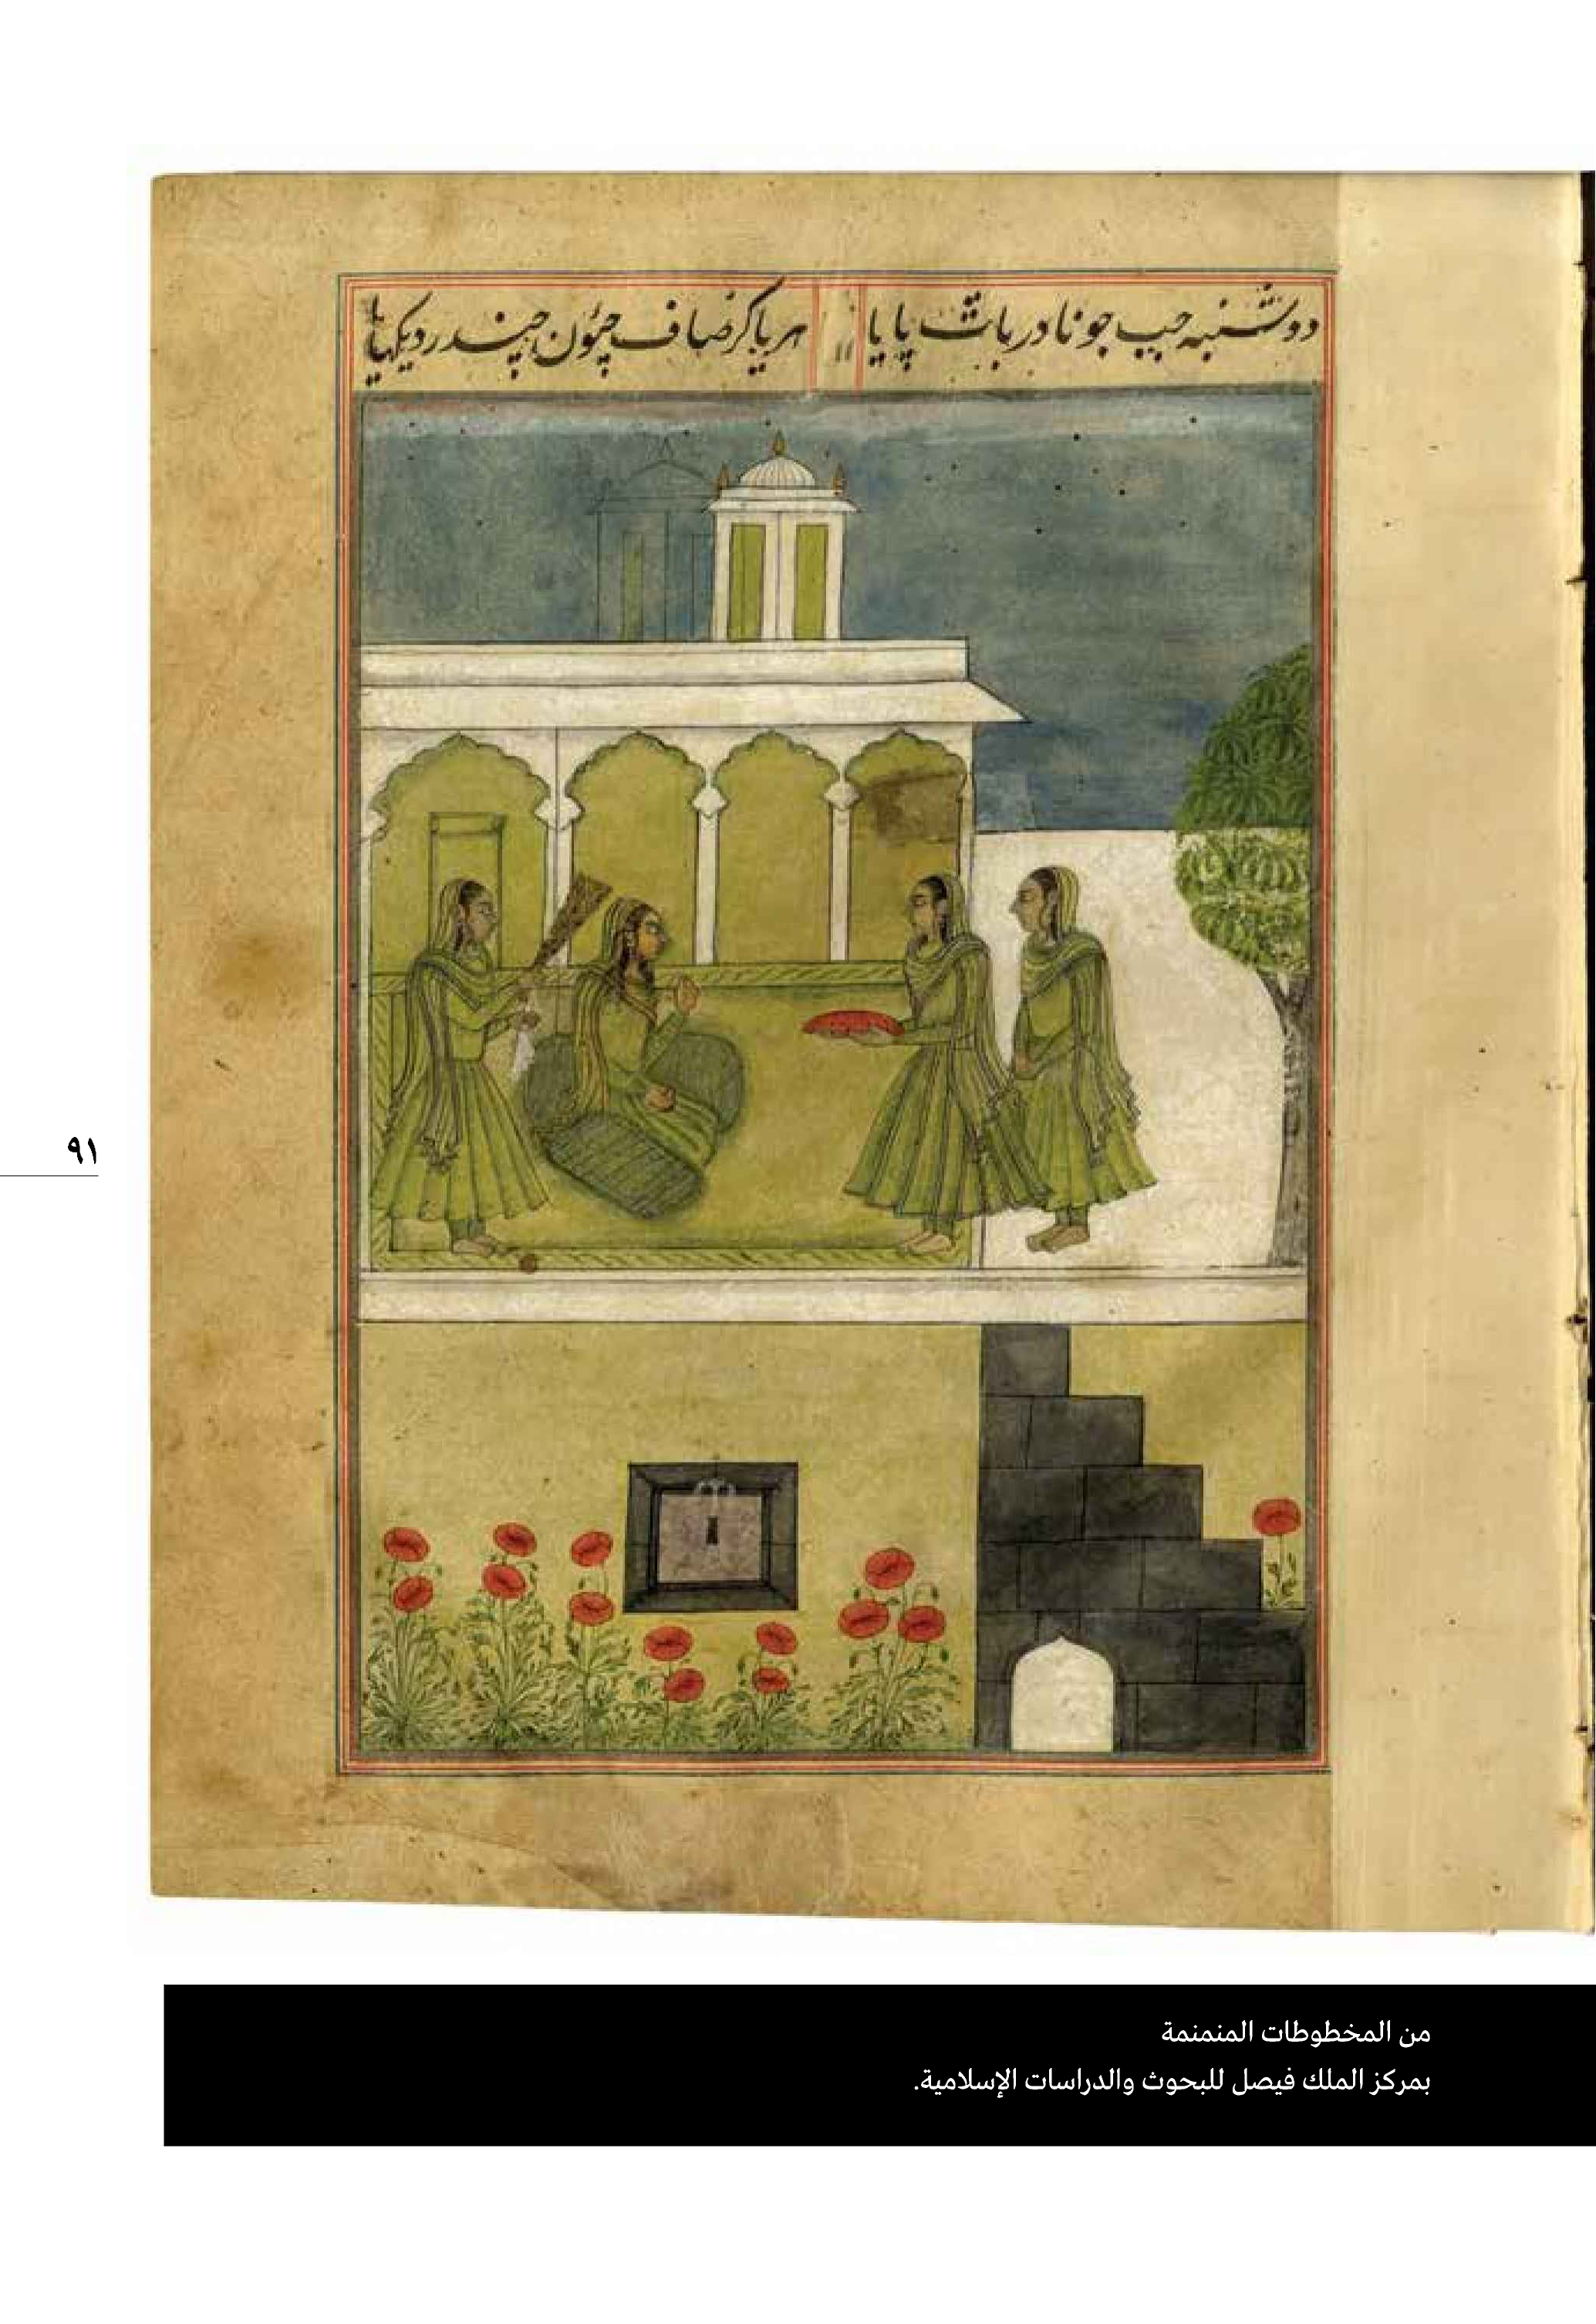 دوشنبه جب جونا در بات پایا
هریا کر صاف چئون چندر دیکهایا
٩١
من المخطوطات المنمنمة
بمركز الملك فيصل للبحوث والدراسات الإسلامية.